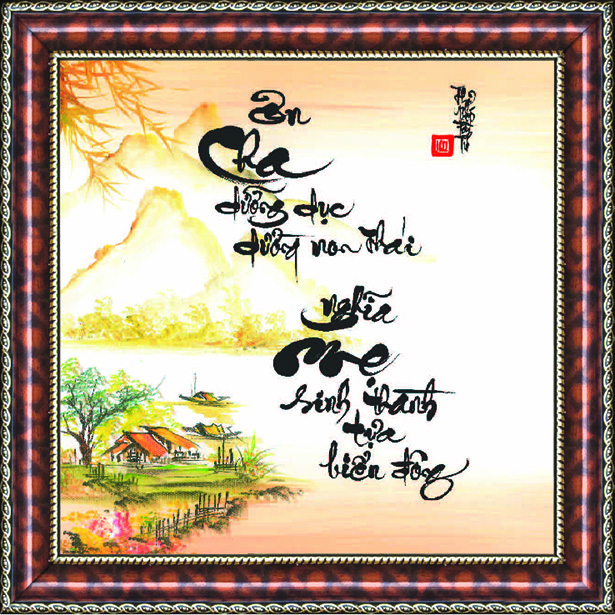 Ơn
Cha
dưỡng dục
dường non Thái
nghĩa
Mẹ
sinh thành
tựa
biển đông